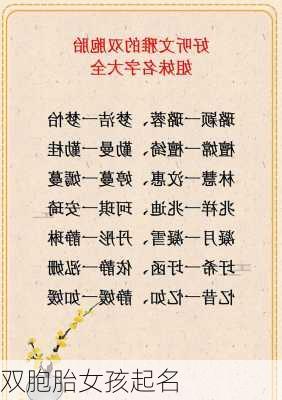 好听文雅的双胞胎
姐妹名字大全
璐颖一璐蓉、梦洁一梦怡
檀嫦一檀绮、勤曼一勤桂
林慧一汶惠、婷蔓一嫣蔓
兆祥一兆迪、珂琪一安琦
凝月一凝雪、丹彤一静琳
圩希一圩函、依静一泓姗
忆昔一忆如、静媛一如媛
双胞胎女孩起名